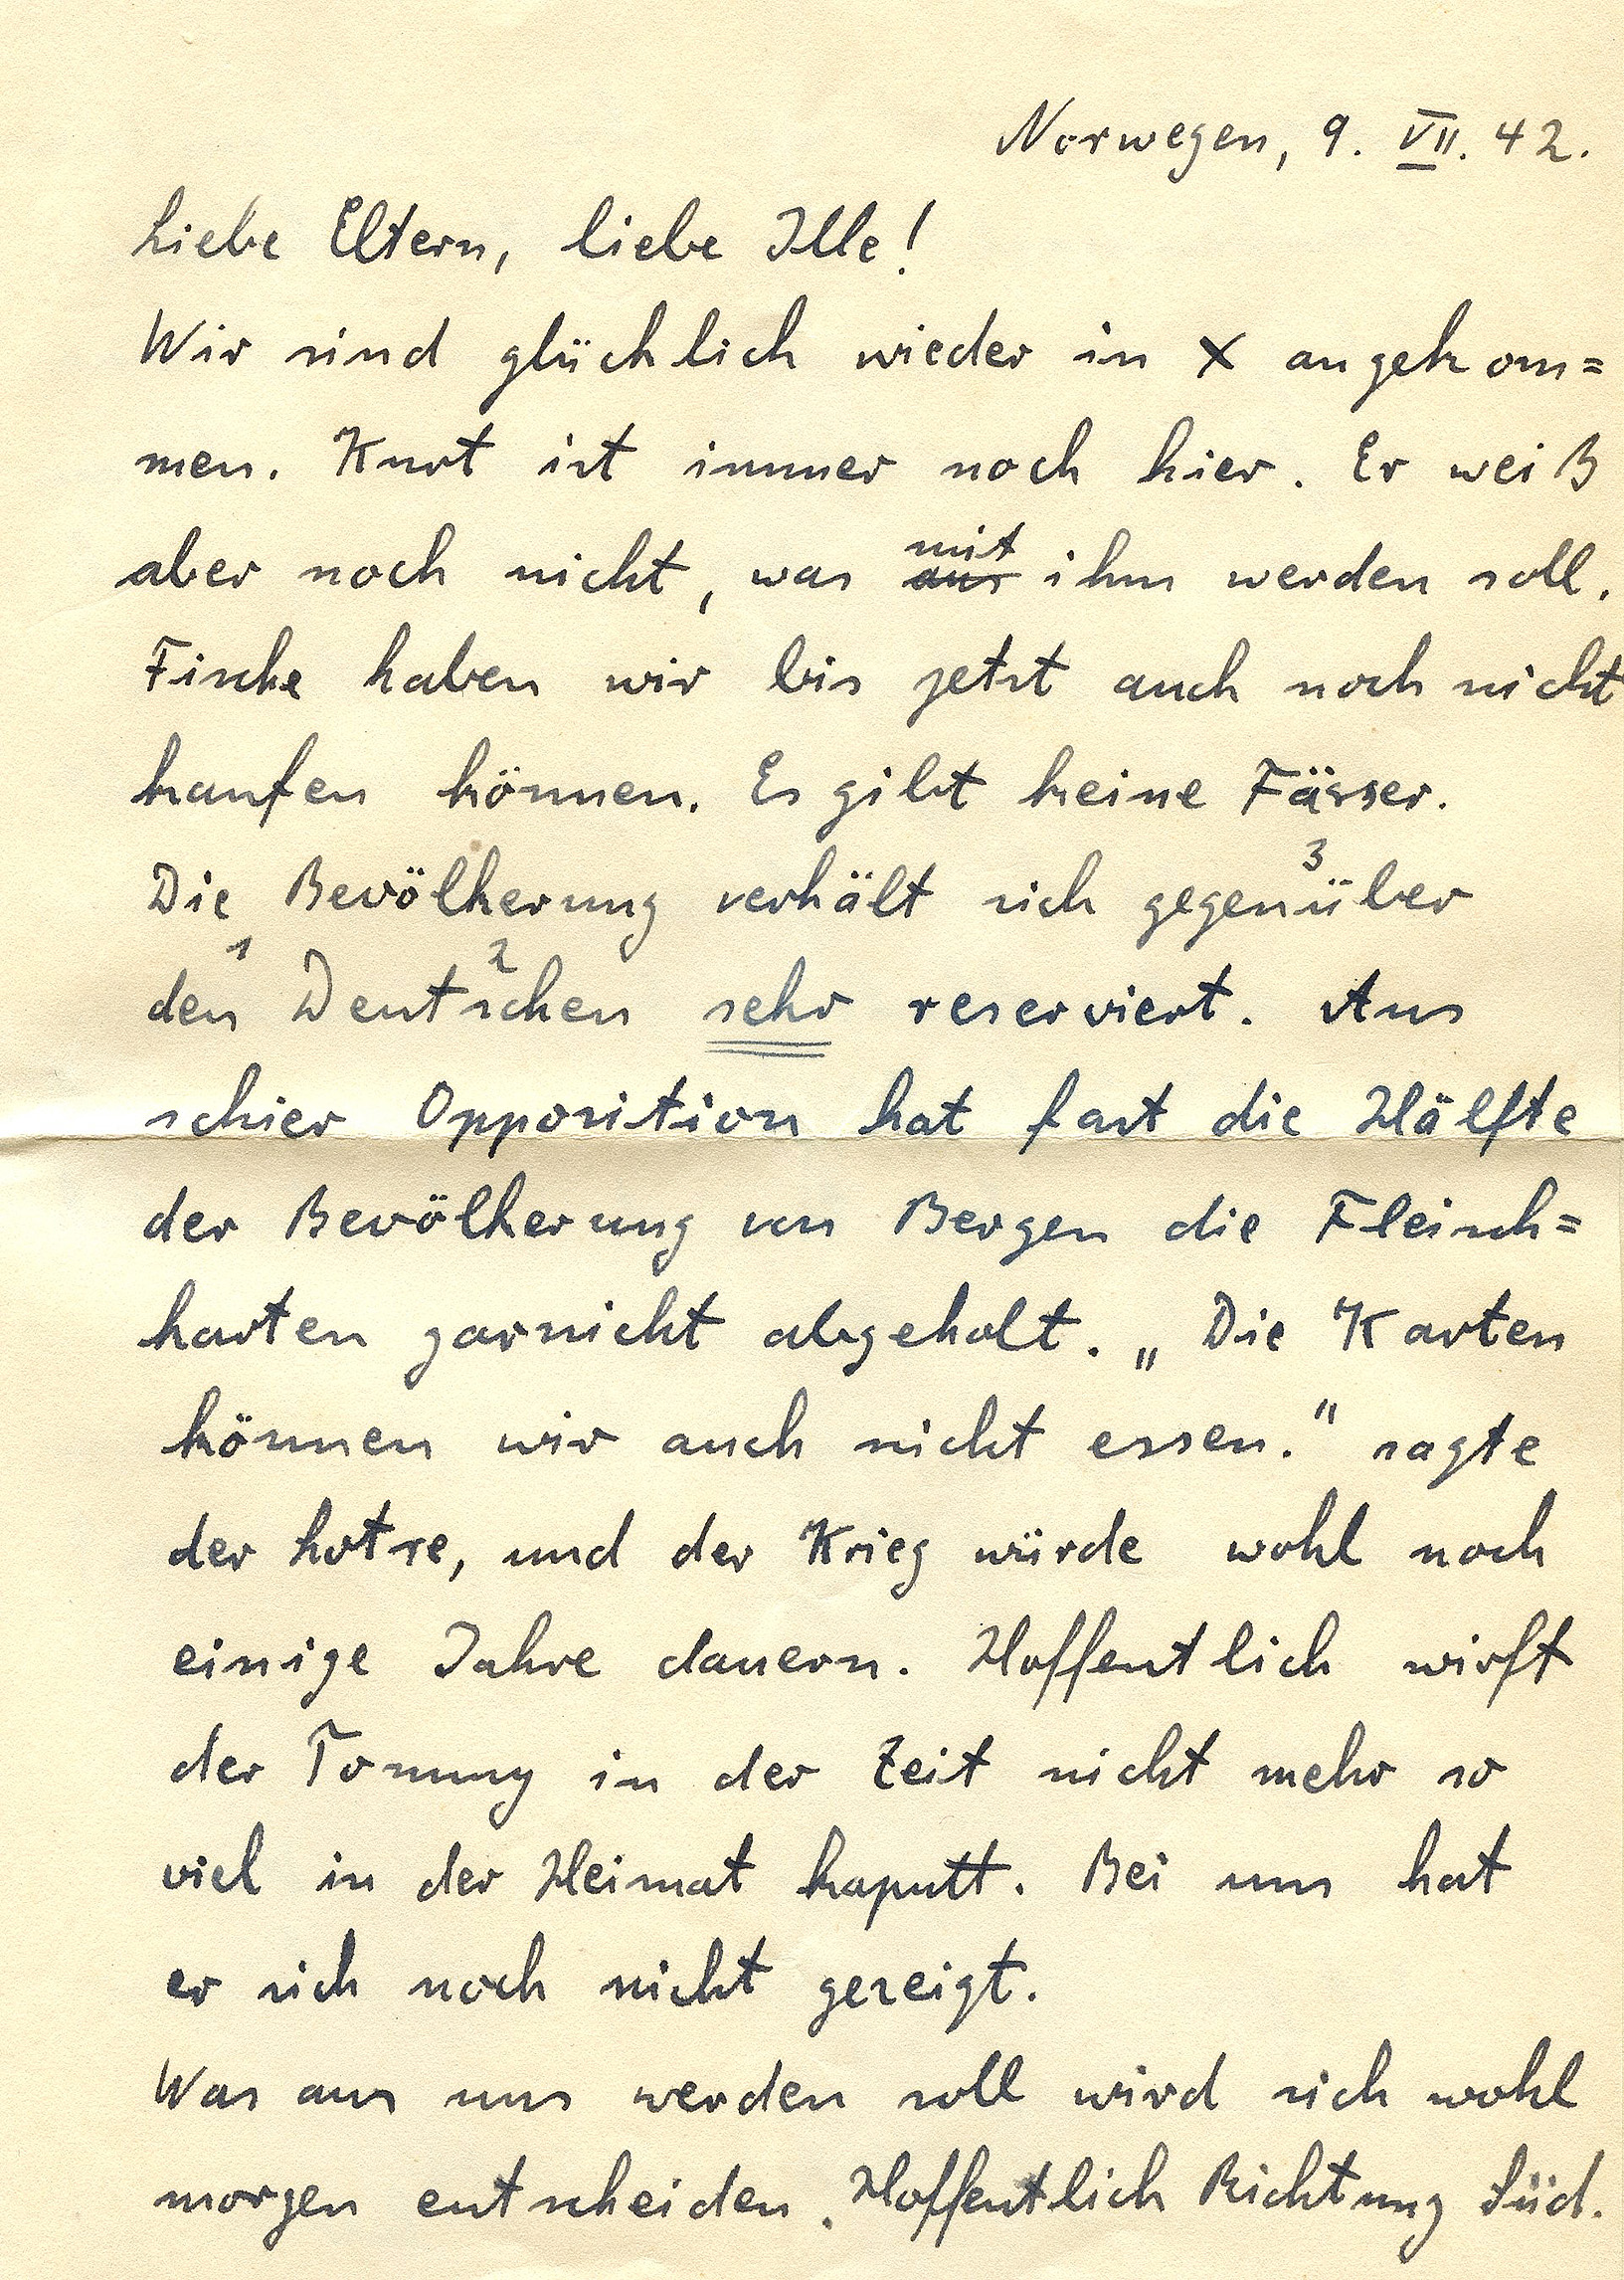 Norwegen, 9. VII. 42.
Liebe Eltern, liebe Ille!
Wir sind glücklich wieder in X angekom=
men. Kurt ist immer noch hier. Er weiß
aber noch nicht, was aus mit ihm werden soll.
Fische haben wir bis jetzt auch noch nicht
kaufen können. Es gibt keine Fässer.
Die Bevölkerung verhält sich gegenüber 3
den 1 Deutschen 2 sehr reserviert. Aus
schier Opposition hat fast die Hälfte
der Bevölkerung von Bergen die Fleisch=
karten garnicht abgeholt. „Die Karten
können wir auch nicht essen." sagte
der, und der Krieg würde wohl noch
einige Jahre dauern. Hoffentlich wirft
der Tommy in der Zeit nicht mehr so
viel in der Heimat kaputt. Bei uns hat
er sich noch nicht gezeigt.
Was aus uns werden soll wird sich wohl
morgen entscheiden. Hoffentlich Richtung Süd.